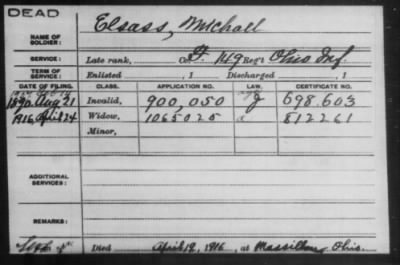 DEAD
NAME OF SOLDIER: Elsass, Michall
SERVICE: Late rank, Co. H. 149 Reg't Ohio Inf.
TERM OF SERVICE: Enlisted , 1 Discharged , 1
DATE OF FILING. CLASS. APPLICATION NO. LAW. CERTIFICATE NO.
1890 Aug 21 Invalid, 900,050 J 698.603
1916 April 24 Widow, 1065025 812261
Minor,
ADDITIONAL SERVICES:
REMARKS:
Died April 18, 1916, at Massillon, Ohio.